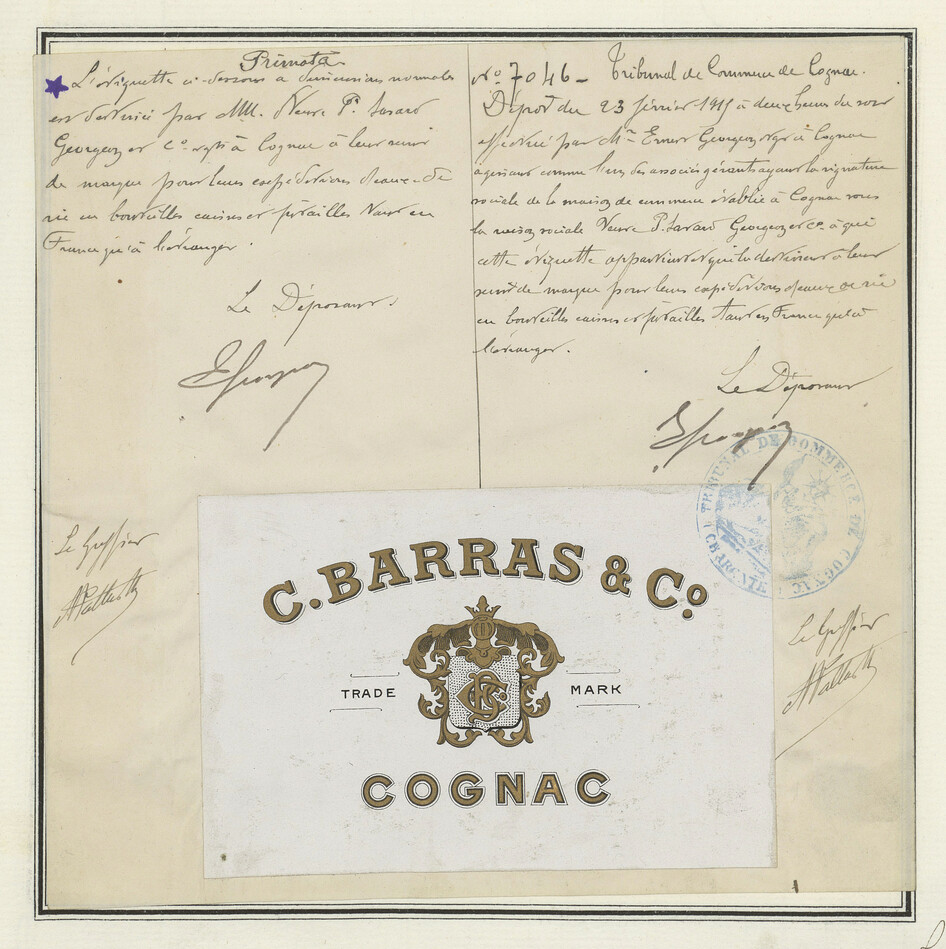 Primata
L'étiquette ci-dessous a dimensions normales
est destinée par MM. Veuve P. Lavard
Georgeon et Co. négts à Cognac à leur servir
de marque pour leurs expéditions d'eaux-de-
vie en bouteilles caisses et futailles tant en
France qu'à l'étranger.
Le Déposant.
Le Greffier
No. 7046 - Tribunal de Commerce de Cognac.
Dépot du 23 février 1915 à deux heures du soir
effectué par Mr. Ernest Georgeon négt à Cognac
agissant comme l'un des associés gérants ayant la signature
sociale de la maison de commerce établie à Cognac sous
la raison sociale Veuve P. Lavard Georgeon et Co. à qui
cette étiquette appartient et qui la destinent à leur
servir de marque pour leurs expéditions d'eaux de vie
en bouteilles caisses et futailles tant en France qu'à
l'étranger.
Le Déposant
TRIBUNAL DE COMMERCE DE COGNAC
(CHARENTE)
Le Greffier
C. BARRAS & Co
TRADE MARK
COGNAC